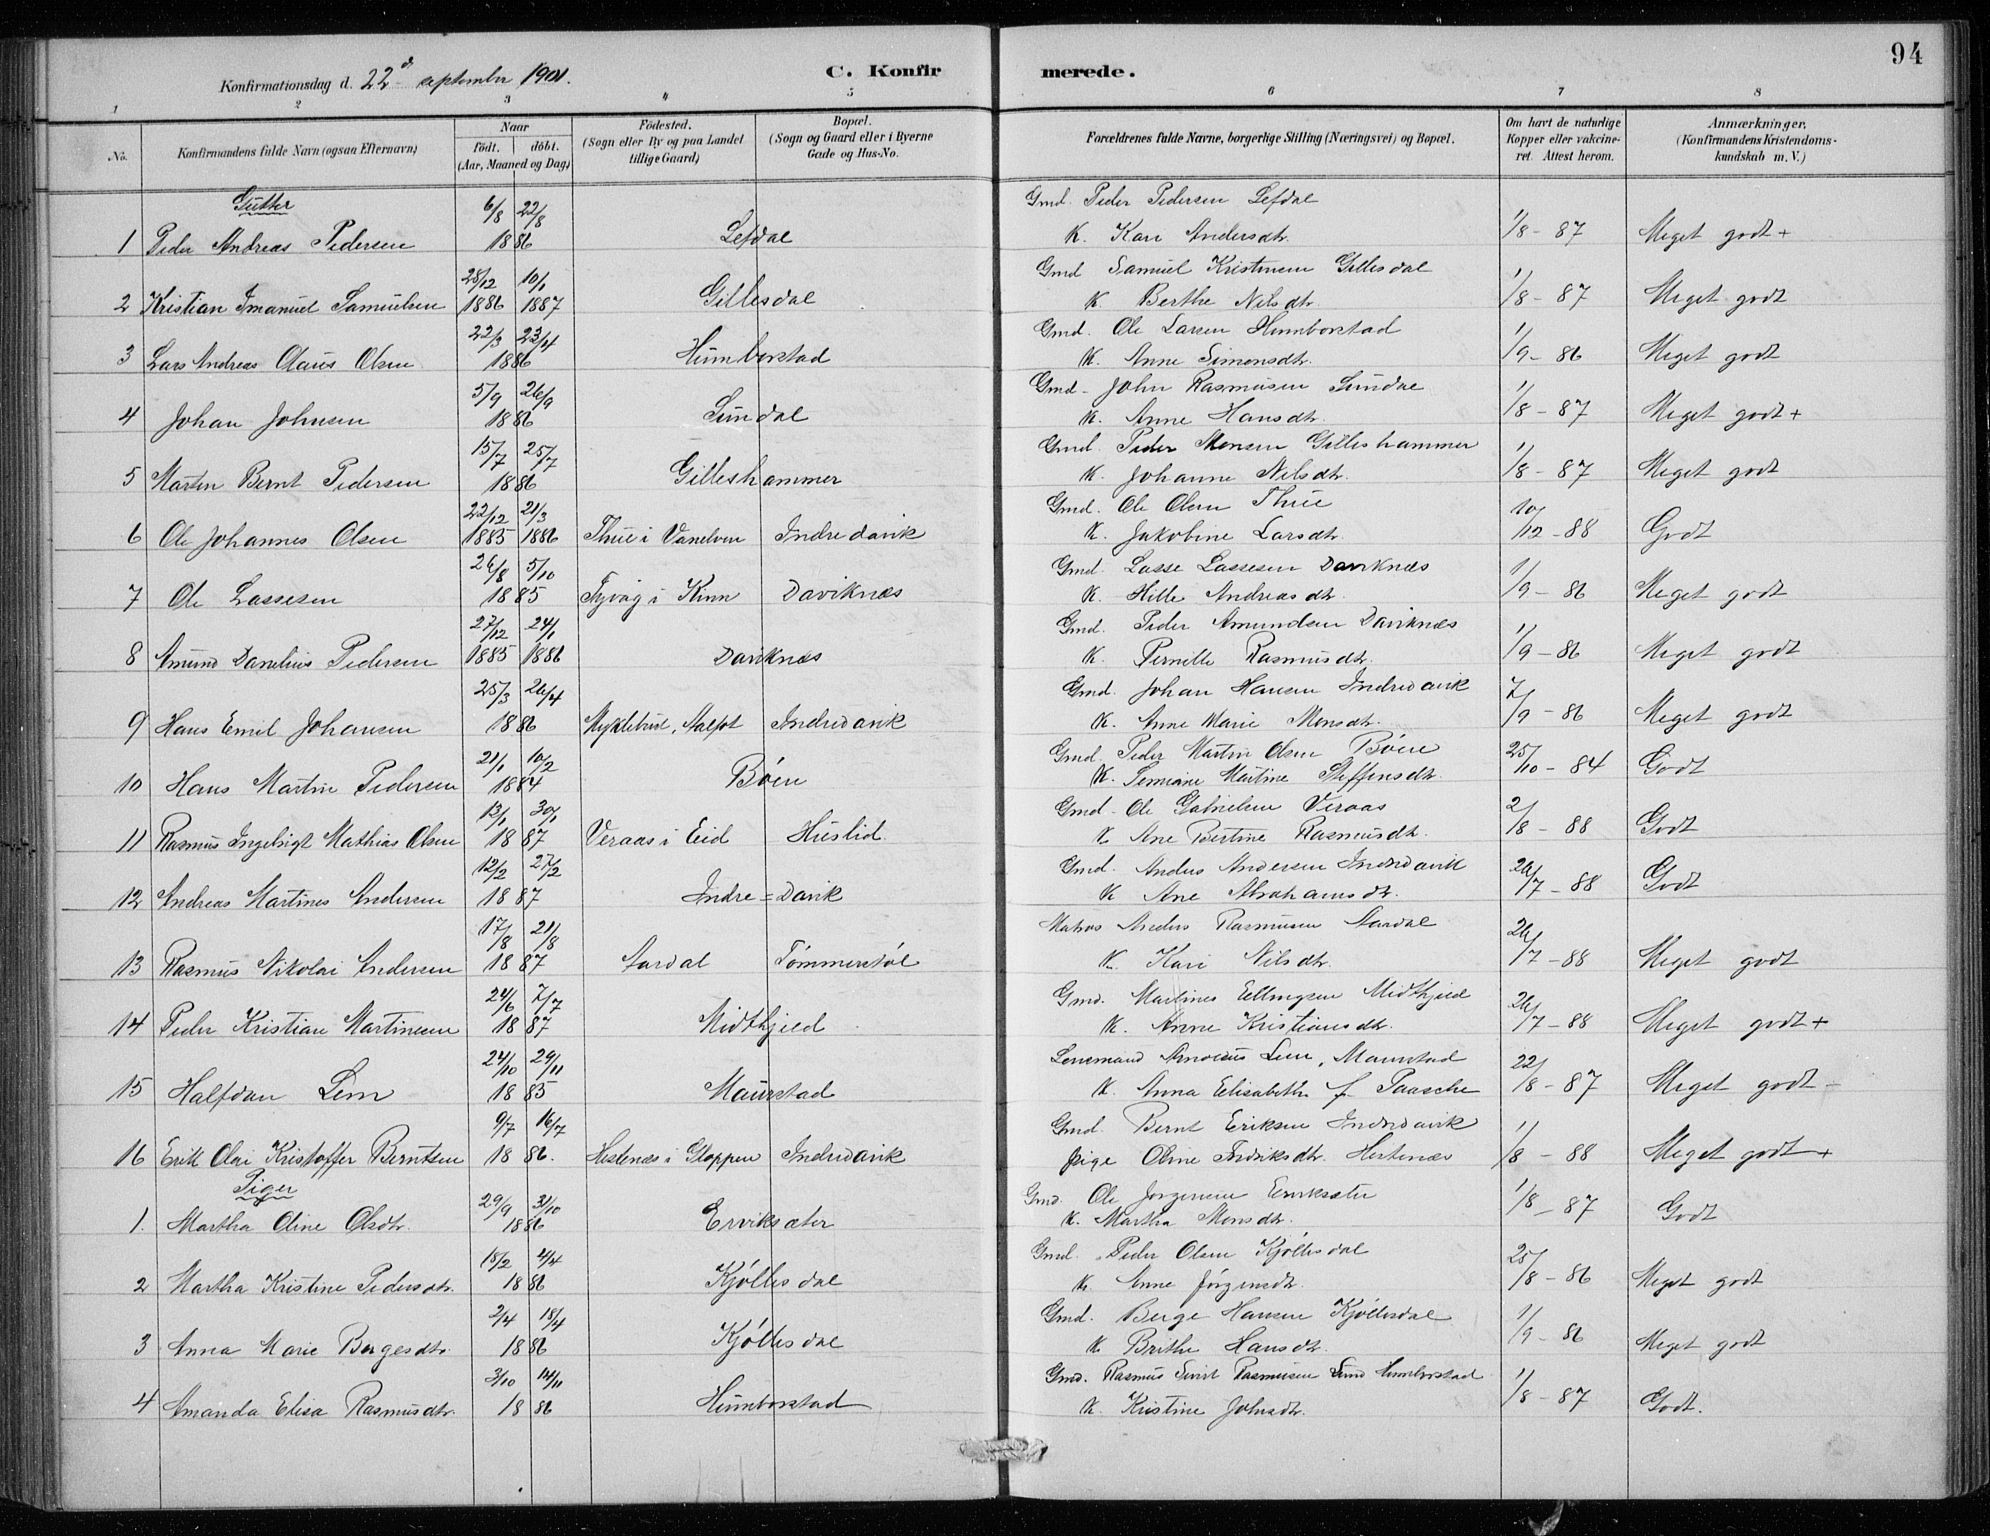 94
Konfirmationsdag d. 22de september 1901.
C. Konfirmerede.
1 2 3 4 5 6 7 8
No. Konfirmandens fulde Navn (ogsaa Efternavn) Naar født. døbt. (Aar, Maaned og Dag) Fødested. (Sogn eller By og paa Landet tillige Gaard) Bopæl. (Sogn og Gaard eller i Byerne Gade og Hus-No. Forældrenes fulde Navne, borgerlige Stilling (Næringsvei) og Bopæl. Om havt de naturlige Kopper eller vakcineret. Attest herom. Anmærkninger. (Konfirmandens Kristendomskundskab m. V.)
Gutter
1 Peder Andreas Pedersen 6/8 22/8 1886 Lefdal Gmd. Peder Pedersen Lefdal K. Kari Andersdtr. 1/8-87 Meget godt+
2 Kristian Imanuel Samuelsen 28/12 1886 10/1 1887 Gillesdal Gmd Samuel Kristensen Gillesdal K Berthe Nilsdtr. 1/8-87 Meget godt
3 Lars Andreas Olaus Olsen 22/3 23/4 1886 Humborstad Gmd. Ole Larsen Humborstad K. Anne Simonsdtr. 1/9-86 Meget godt
4 Johan Johnsen 5/9 26/9 1886 Sundal Gmd- John Rasmusen Sundal K. Anne Hansdtr. 1/8-87 Meget godt+
5 Martin Bernt Pedersen 15/7 25/7 1886 Gilleshammer Gmd. Peder Monsen Gilleshammer K. Johanne Nilsdtr. 1/8-87 Meget godt
6 Ole Johannes Olsen 22/12 1885 21/3 1886 Thue i Vanelven Indredavik Gmd. Ole Olsen Thue K. Jakobine Larsdtr. 10/12-88 Godt
7 Ole Lassesen 26/8 5/10 1885 i Kinn Daviknæs Gmd. Lasse Lassesen Daviknæs K. Hille Andreasdtr. 1/9-86 Meget godt
8 Amund Danelius Pedersen 27/12 1885 24/1 1886 Daviknæs Gmd. Peder Amundsen Daviknæs K. Pernille Rasmusdtr. 1/9-86 Meget godt
9 Hans Emil Johansen 25/3 26/4 1886 Myklebust, Aalfot Indredavik Gmd. Johan Hansen Indredavik K. Anne Marie Monsdtr. 7/9-86 Meget godt
10 Hans Martin Pedersen 21/1 10/2 1884 Bøen Gmd Peder Martin Olsen Bøen K. Martine Steffensdtr. 25/10-84 Godt
11 Rasmus Ingebrigt Mathias Olsen 13/1 30/1 1887 Veraas i Eid Huslid Gmd- Ole Gabrielsen Veraas K Ane Bertine Rasmusdtr. 2/8-88 Godt
12 Andreas Martines Andersen 12/2 27/2 1887 Indre=Davik Gmd. Anders Andersen Indredavik K Ane Abrahamsdtr. 26/7-88 Godt
13 Rasmus Nikolai Andersen 17/8 21/8 1887 Aardal Tømmerstøl Matros Anders Rasmusen Aardal K. Kari Nilsdtr. 26/7-88 Meget godt
14 Peder Kristian Martinesen 24/6 7/7 1887 Midthjeld Gmd. Martines Ellingsen Midthjeld K. Anne Kristiansdtr. 26/7-88 Meget godt+
15 Halfdan Lem 24/10 29/11 1885 Maurstad Lensmand Lem, Maurstad K. Anna Elisabeth f. Paasche 22/8-87 Meget godt-
16 Erik Olai Kristoffer Berntsen 9/7 16/7 1886. Hestenæs i Gloppen Indredavik Gmd. Bernt Eriksen Indredavik Pige Oline Fredriksdtr. Hestenæs 1/8-88 Meget godt+
Piger
1. Martha Oline Olsdtr. 29/9 31/10 1886 Erviksæter Gmd. Ole Jørgensen Erviksæter K. Martha Monsdtr. 1/8-87 Godt
2 Martha Kristine Pedersdtr. 15/2 4/4 1886 Kjøllesdal Gmd. Peder Olsen Kjøllesdal K. Anne Jørgensdtr. 25/8-86 Meget godt
3 Anna Marie Bergesdtr. 2/4 18/4 1886 Kjøllesdal Gmd. Berge Hansen Kjøllesdal K Brithe Hansdtr. 1/9-86 Meget godt
4 Amanda Elisa Rasmusdtr. 3/10 14/11 1886 Humborstad Gmd. Rasmus Sivert Rasmusen Humborstad K. Kristine Johnsdtr. 1/8-87 Godt.